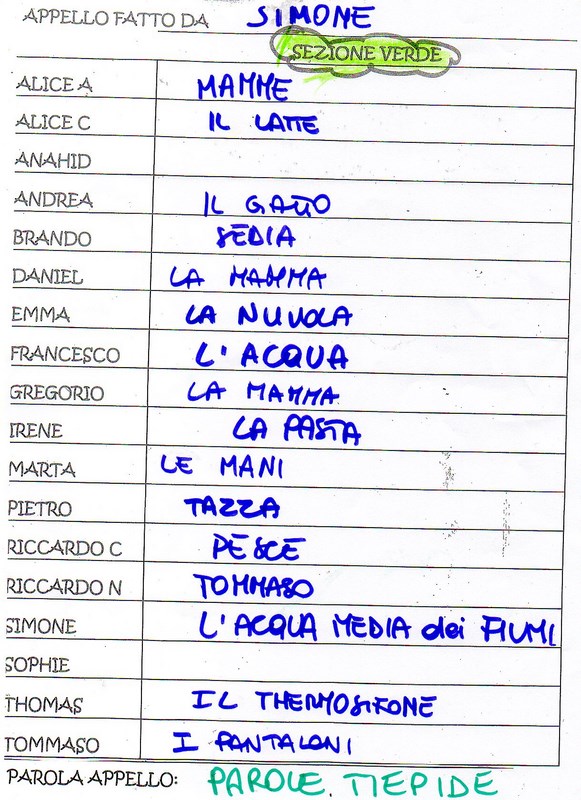 APPELLO FATTO DA SIMONE
SEZIONE VERDE
ALICE A MAMME
ALICE C IL LATTE
ANAHID
ANDREA IL GATTO
BRANDO SEDIA
DANIEL LA MAMMA
EMMA LA NUVOLA
FRANCESCO L'ACQUA
GREGORIO LA MAMMA
IRENE LA PASTA
MARTA LE MANI
PIETRO TAZZA
RICCARDO C PESCE
RICCARDO N TOMMASO
SIMONE L'ACQUA MEDIA dei FIUMI
SOPHIE
THOMAS IL THERMOSIFONE
TOMMASO I PANTALONI
PAROLA APPELLO: PAROLE TIEPIDE